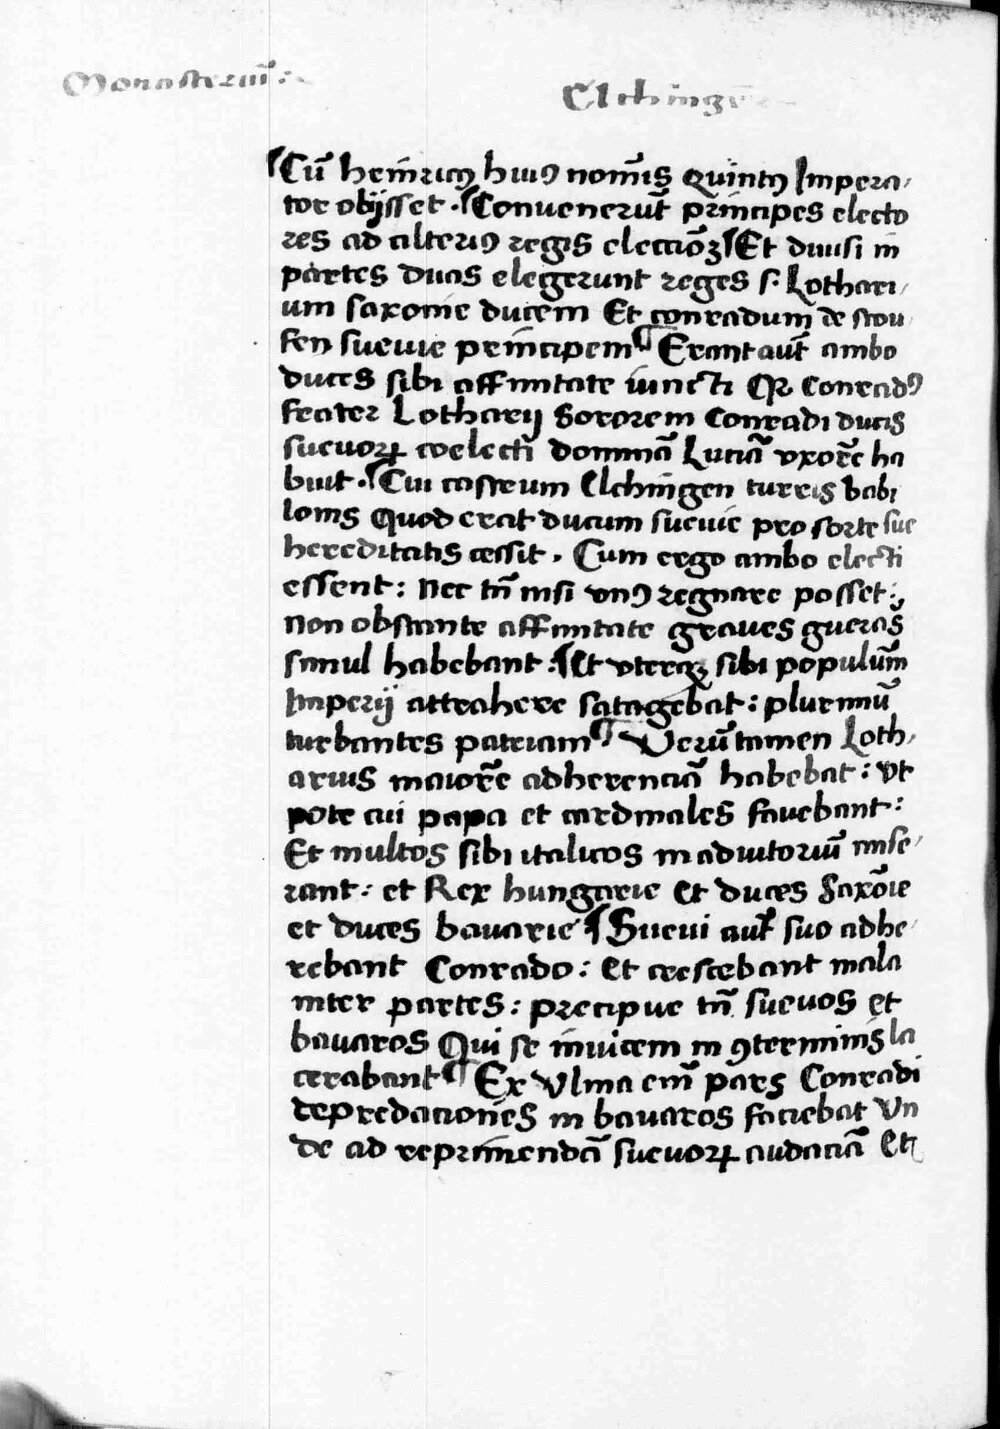 Monasteriū :
Elchingē
¶Cū heinricꝰ huiꝰ nomīs quintꝰ Impera,
tor obijsset . ¶Convenerūt principes electo
res ad alteriꝰ regis eleccōnꝫ ¶Et divisi in
partes duas elegerunt reges s. Lothari,
um saxonie ducem Et conradum de stou,
fen suevie principem ¶ Erant aūt ambo
duces sibi affinitate iuncti Qr Conradꝰ
frater Lotharij Sororem Conradi ducis
suevoꝝ coelecti dominā Luciā vxorē ha
buit . ¶Cui castrum Elchingen turris babi
lonis Quod erat ducum suevie pro sorte sue
hereditatis cessit . Cum ergo ambo electi
essent : nec tn̄ nisi vnꝰ regnare posset :,
non obstante affinitate graves gueras
simul habebant : ¶Et vterqꝫ sibi populūm
Imperij attrahere satagebat : plurimū
turbantes patriam ¶ Verūtamen Loth,
arius maiorē adherenciā habebat : vt
pote cui papa et cardinales favebant :
Et multos sibi italicos in adiutoriū mise,
rant : et Rex hungarie et duces Saxōie
et duces bavarie ¶ Suevi aūt suo adhe,
rebant Conrado : et crescebant mala
inter partes : precipue tn̄ suevos et
bavaros Qui se invicem in ꝯterminis la
cerabant ¶ Ex Vlma enī pars Conradi
depredaciones in bavaros faciebat Vn
de ad reprimendā suevoꝝ audaciā Et